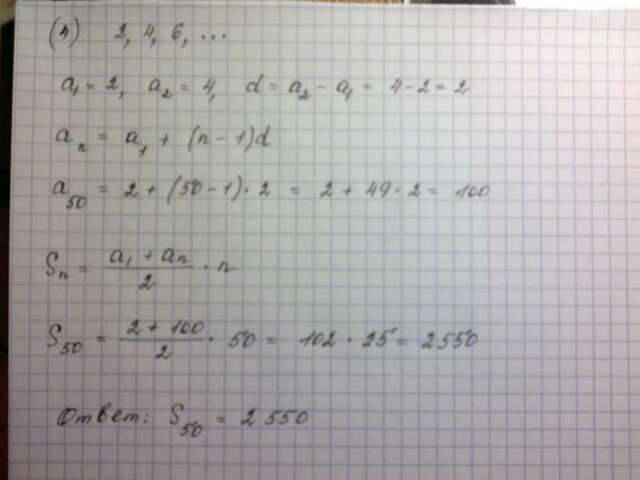 (1) 2, 4, 6, ...
a₁ = 2, a₂ = 4, d = a₂ - a₁ = 4 - 2 = 2
aₙ = a₁ + (n - 1)d
a₅₀ = 2 + (50 - 1) · 2 = 2 + 49 · 2 = 100
Sₙ = (a₁ + aₙ)/2 · n
S₅₀ = (2 + 100)/2 · 50 = 102 · 25 = 2550
Ответ: S₅₀ = 2550